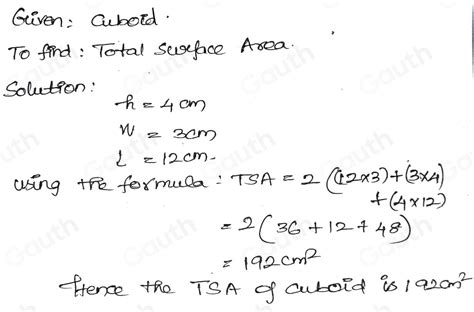 Given: Cuboid.
To find: Total Surface Area.
Solution:
h = 4 cm
W = 3cm
L = 12cm.
using the formula: TSA = 2 ((12x3)+(3x4)
+(4x12)
= 2(36+12+48)
= 192cm²
Hence the TSA of cuboid is 192cm²